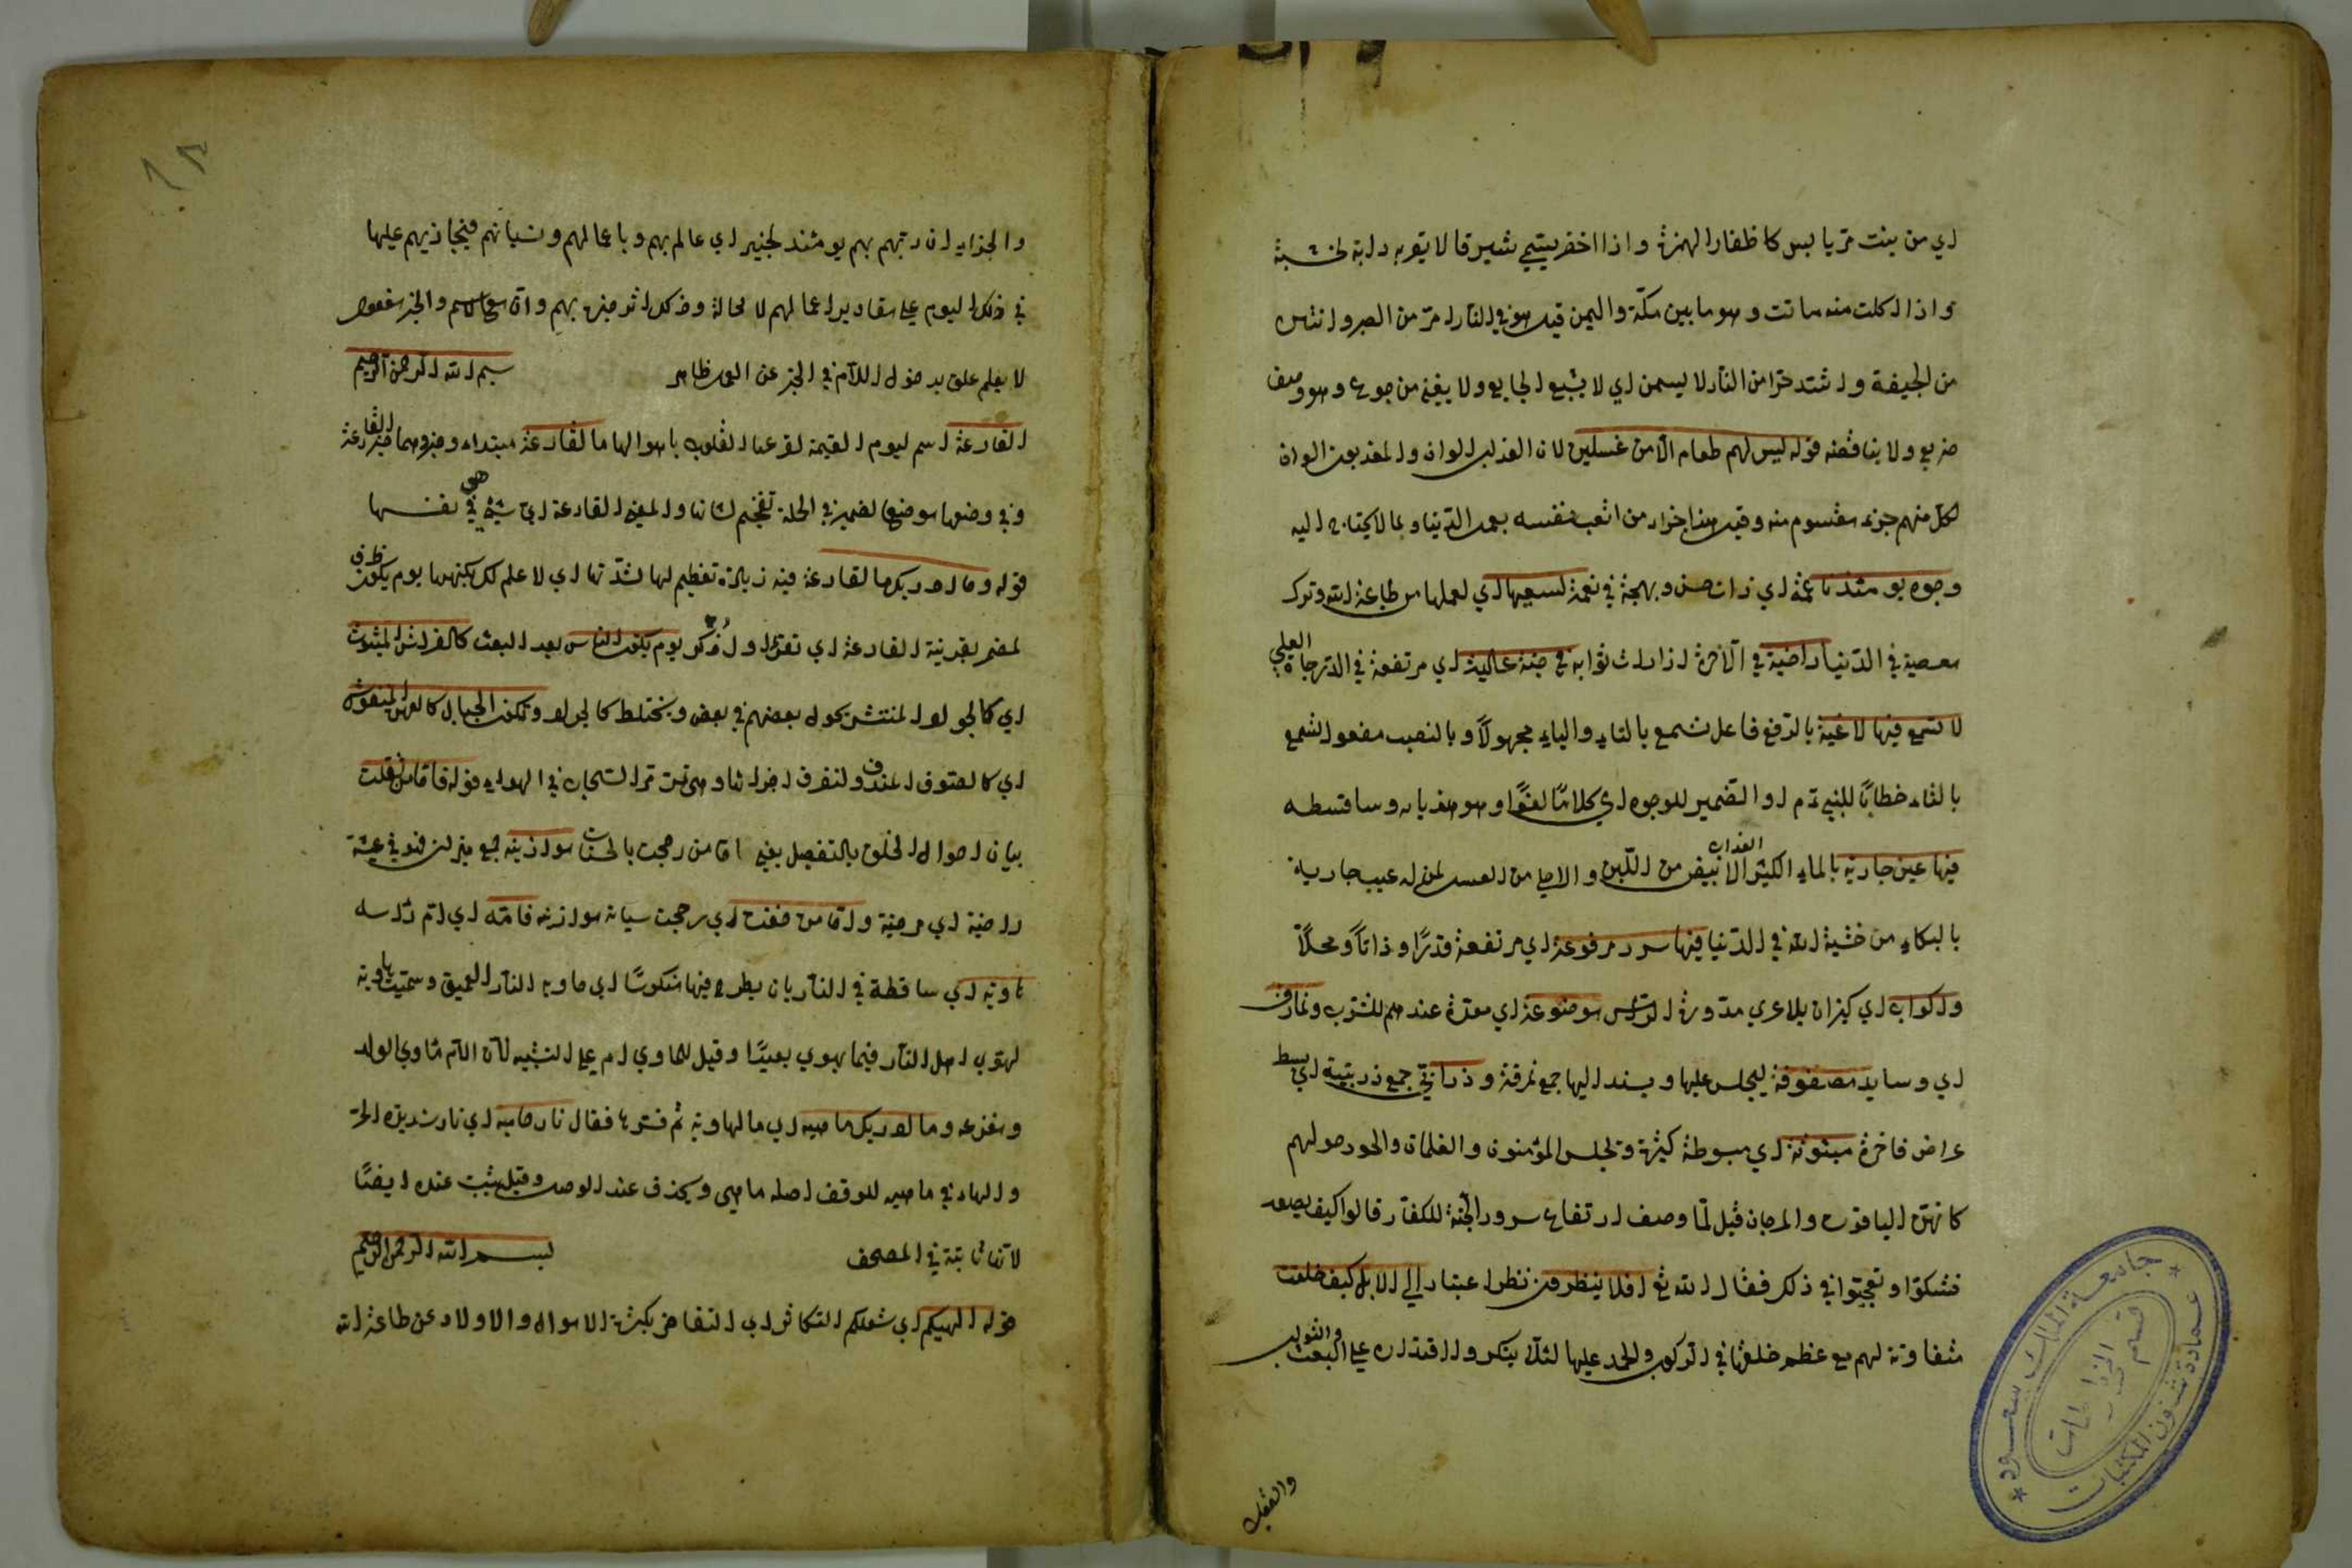 اي من بنت مر يابس كاظفار الهرة واذا اخضر يسمى شبرق لا يقربه دابة لخبثه
واذا اكلت منه ماتت وهو ما بين مكة واليمن قيل هو في النار امر من الصبر وانتن
من الجيفة واشد حرا من النار لا يسمن اي لا يشبع الجايع ولا يغني من جوع وهو وصف
ضريع ولا يناقضه قوله ليس لهم طعام الا من غسلين لان العذاب الوان والمعذبون الوان
لكل منهم جزء مقسوم منه وقيل هذا جزاء من اتعب نفسه بعمل الدنيا وبما لا يحتاج اليه
وجوه يومئذ ناعمة اي ذات حسن وبهجة في نعمة لسعيها اي لعملها من طاعة الله وترك
معصية في الدنيا راضية في الآخرة اذا رات ثوابه في جنة عالية اي مرتفعة في الدرجات العلي
لا تسمع فيها لاغية بالرفع فاعل تسمع بالتاء والياء مجهولا وبالنصب مفعول تسمع
بالتاء خطابا للنبي او الضمير للوجوه اي كلاما لغوا وهو هذيان وساقطه
فيها عين جارية بالماء الكثير العذاب الابيض من اللبن والاحلى من العسل لمن له عيب جارية
بالبكاء من خشية الله في الدنيا فيها سرر مرفوعة اي مرتفعة قدرا وذاتا ومحلا
واكواب اي كيزان بلا عرى مدورة الراس موضوعة اي معدة عندهم للشرب ونمارق
اي وسايد مصفوفة ليجلس عليها ويسند اليها جمع نمرقة وزرابي جمع زربية اي بسط
عراض فاخرة مبثوثة اي مبسوطة كثيرة وتجلس المؤمنون والغلمان والحور حولهم
كانهن الياقوت والمرجان قيل لما وصف ارتفاع سرور الجنة للكفار قالوا كيف يصعد
فشكوا وتعجبوا في ذلك فقال الله تع افلا ينظرون نظر اعتبار الي الابل كيف خلقت
متفاوتة لهم مع عظم خلقها في الركوب والحمل عليها لئلا ينكروا اقتداره على البعث والثواب
والعقاب
والجزاء ان ربهم بهم يومئذ لخبير اي عالم بهم وباعمالهم ونياتهم فيجازيهم عليها
في ذلك اليوم على مقادير اعمالهم لا محالة وذكل اثر خبر بهم وان مع اسم والخبر مفعول
لا يعلم علق بدخول اللام في الخبر عن العمل ظاهر بسم الله الرحمن الرحيم
القارعة اسم ليوم القيمة لقرعها القلوب باهوالها ما القارعة مبتداء وخبر وهما خبر القارعة
وفي وضعها موضع الضمير في الجملة تفخيم لشانها والمعنى القارعة اي شيء هي في نفسها
قوله وما ادريك ما القارعة فيه زيادة تعظيم لها لشدتها اي لا علم لك بكنهها يوم يكون ظرف
لمضمر بقرينة القارعة اي تقرع او اذكر يوم يكون الناس بعد البعث كالفراش المبثوث
اي كالجراد المنتشر يجول بعضهم في بعض ويختلط كالجراد وتكون الجبال كالعهن المنفوش
اي كالصوف المندف ولتفرق اجزائها وهي تمر مر السحاب في الهواء قوله فاما من ثقلت
بيان احوال الخلق بالتفصيل يعني اما من رجحت بالحسنات موازينه جمع ميزان فهو في عيشة
راضية اي مرضية واما من خفت اي رجحت سياته موازينه فامه اي ام راسه
هاوية اي ساقطة في النار بان يطرح فيها منكوسا اي ماويه النار العميق وسميت هاوية
لهوي اهل النار فيها يهوي بعيدا وقيل للماوي ام على التشبيه لان الام ماوي الولد
ومفزعه وما ادريك ما هيه اي ما الهاوية ثم فسرها فقال نار حامية اي نار شديدة الحر
والهاء في ما هيه للوقف اصله ما هي ويحذف عند الوصل وقيل يثبت عنده ايضا
لانها ثابتة في المصحف بسم الله الرحمن الرحيم
قوله الهيكم اي شغلكم التكاثر اي التفاخر بكثرة الاموال والاولاد عن طاعة الله
جامعة الملك سعود
عمادة شؤون المكتبات
قسم المخطوطات